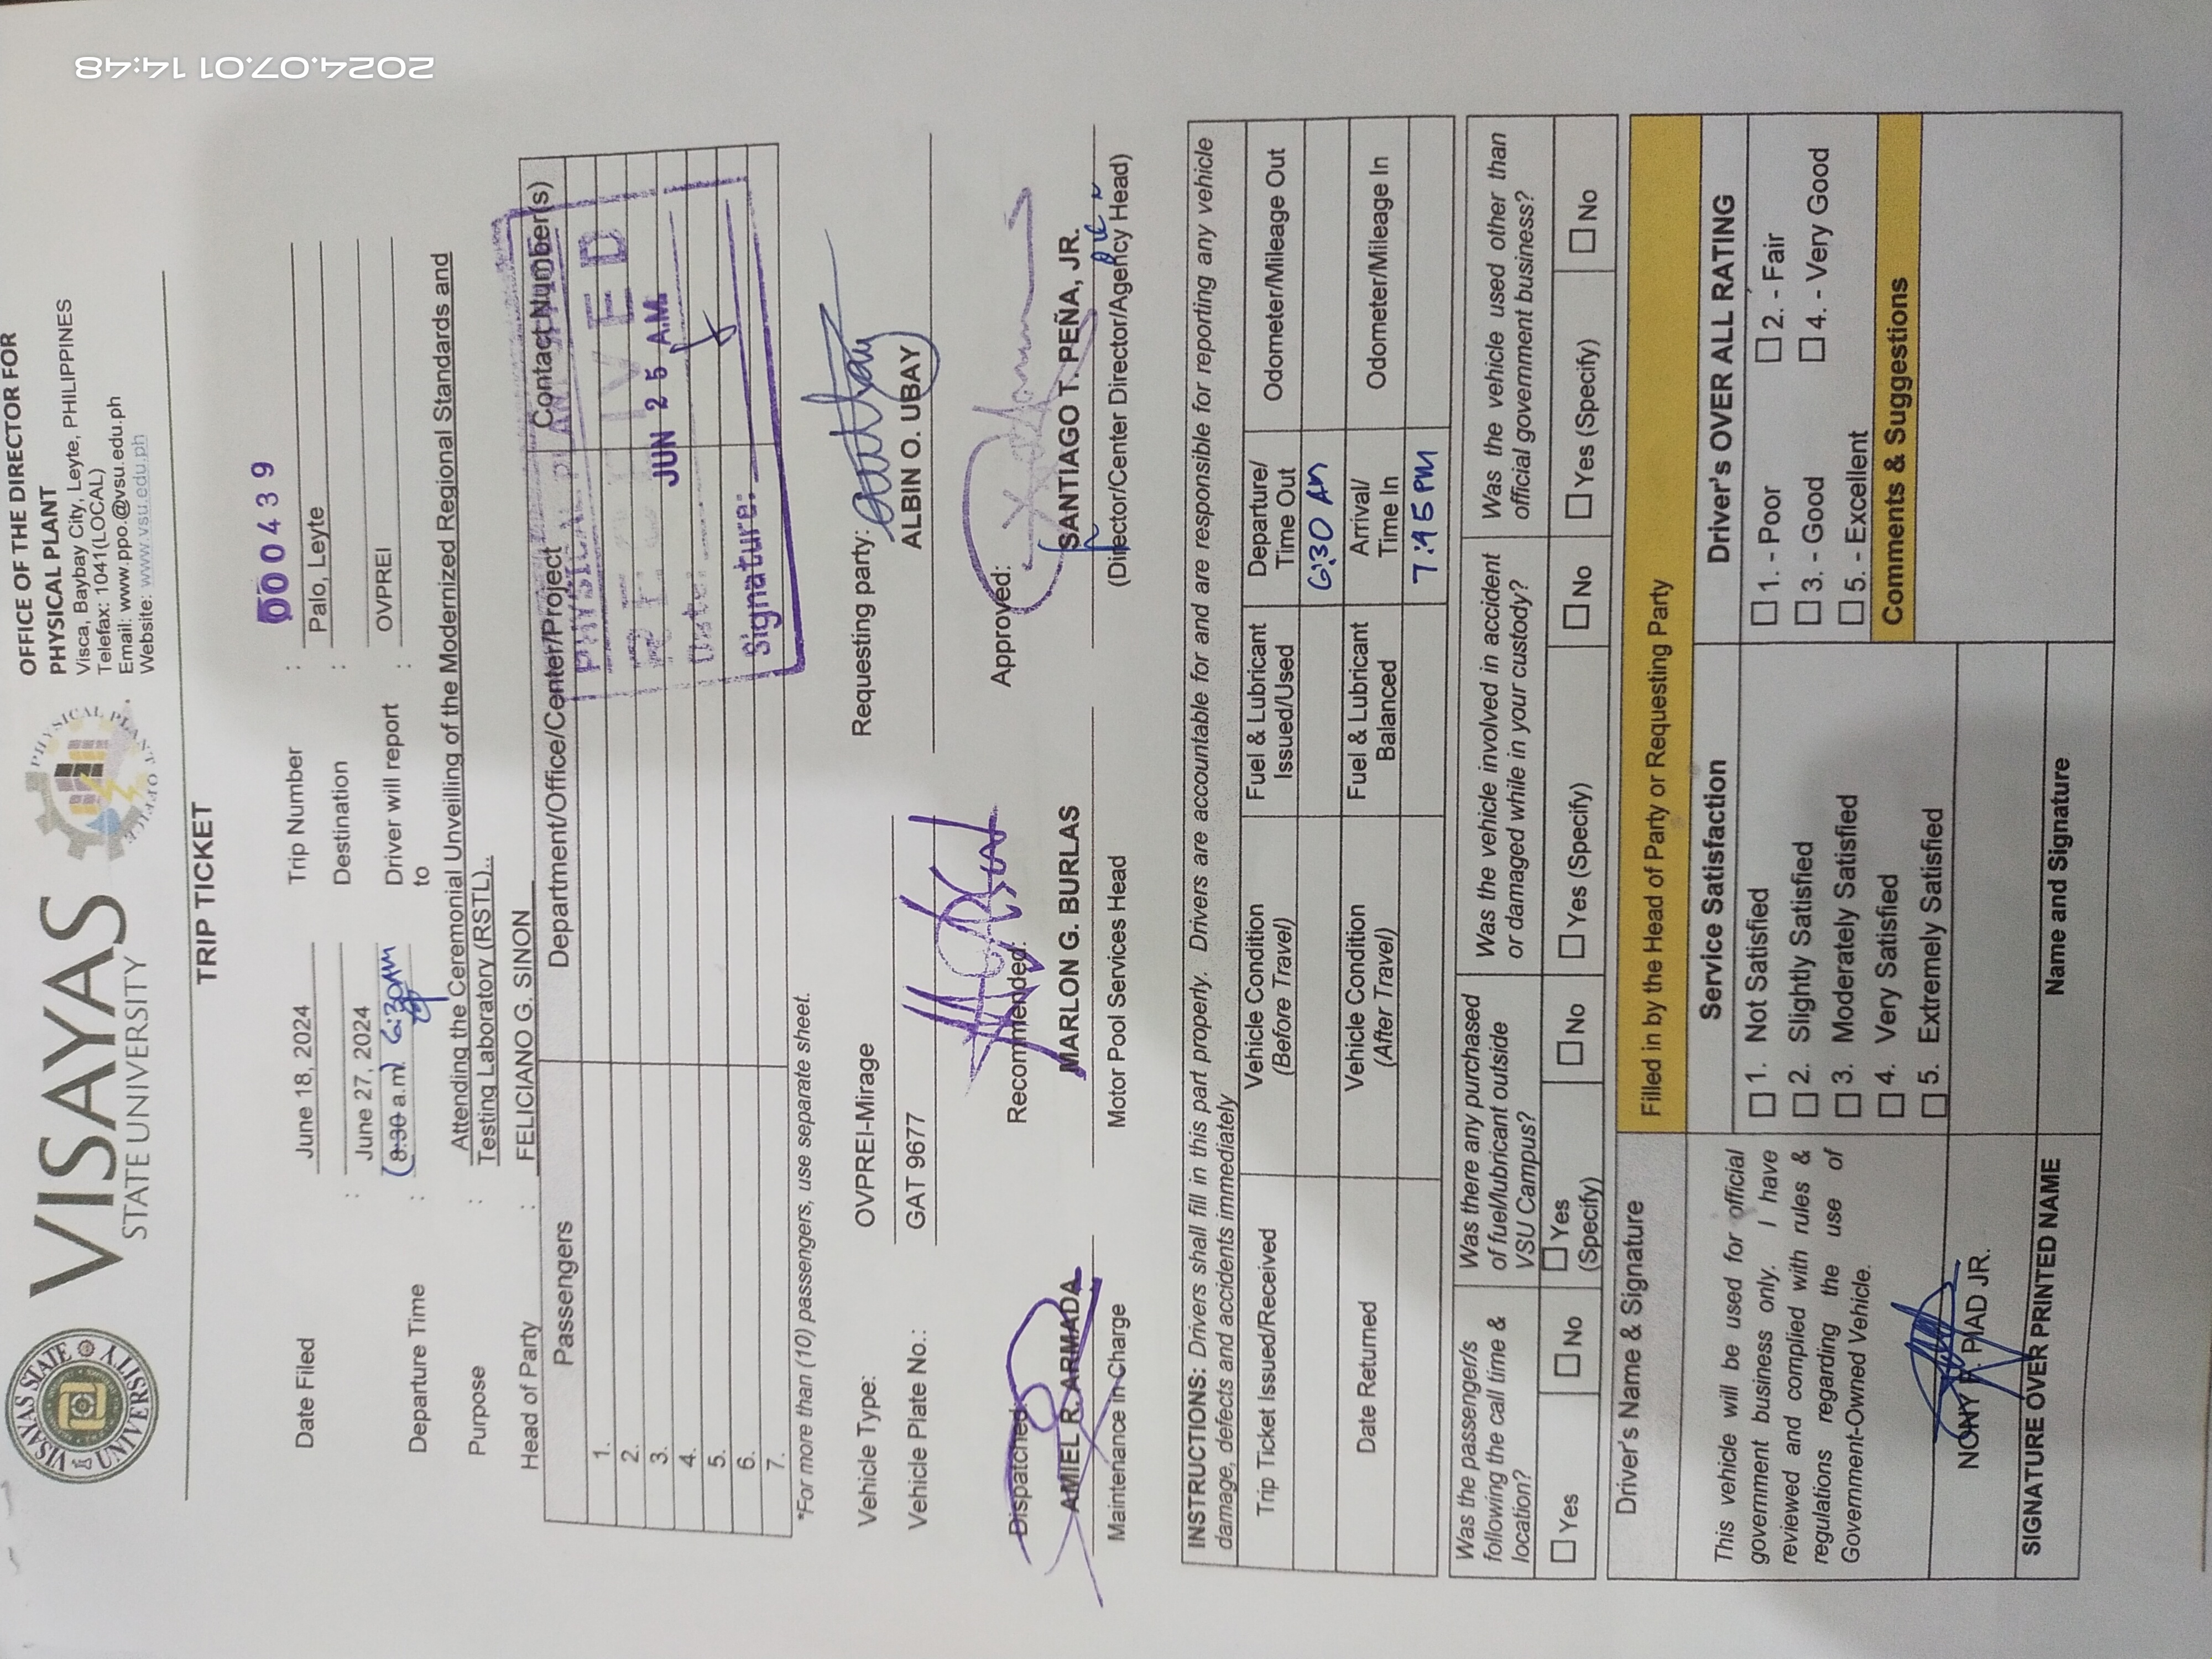 VISAYAS
STATE UNIVERSITY
VISAYAS STATE UNIVERSITY
OFFICE OF THE DIRECTOR FOR
PHYSICAL PLANT
Visca, Baybay City, Leyte, PHILIPPINES
Telefax: 1041(LOCAL)
Email: www.ppo.@vsu.edu.ph
Website: www.vsu.edu.ph
TRIP TICKET
00439
Date Filed June 18, 2024 Trip Number :
: June 27, 2024 Destination : Palo, Leyte
Departure Time : (8:30 a.m) 6:30AM Driver will report to : OVPREI
Purpose : Attending the Ceremonial Unveilling of the Modernized Regional Standards and
Testing Laboratory (RSTL)..
Head of Party : FELICIANO G. SINON
Passengers Department/Office/Center/Project Contact Number(s)
1.
2.
3.
4.
5.
6.
7.
RECEIVED
Date:
JUN 25 A.M
Signature:
*For more than (10) passengers, use separate sheet.
Vehicle Type: OVPREI-Mirage Requesting party:
Vehicle Plate No.: GAT 9677 ALBIN O. UBAY
Dispatched: Recommended: Approved:
AMIEL R. ARMADA MARLON G. BURLAS SANTIAGO T. PEÑA, JR.
Maintenance in Charge Motor Pool Services Head (Director/Center Director/Agency Head)
INSTRUCTIONS: Drivers shall fill in this part properly. Drivers are accountable for and are responsible for reporting any vehicle
damage, defects and accidents immediately
Trip Ticket Issued/Received Vehicle Condition (Before Travel) Fuel & Lubricant Issued/Used Departure/ Time Out Odometer/Mileage Out
6:30 AM
Date Returned Vehicle Condition (After Travel) Fuel & Lubricant Balanced Arrival/ Time In Odometer/Mileage In
7:45 PM
Was the passenger/s following the call time & location? Was there any purchased of fuel/lubricant outside VSU Campus? Was the vehicle involved in accident or damaged while in your custody? Was the vehicle used other than official government business?
☐ Yes ☐ No ☐ Yes (Specify) ☐ No ☐ Yes (Specify) ☐ No ☐ Yes (Specify) ☐ No
Driver's Name & Signature Filled in by the Head of Party or Requesting Party
Service Satisfaction Driver's OVER ALL RATING
This vehicle will be used for official
government business only. I have
reviewed and complied with rules &
regulations regarding the use of
Government-Owned Vehicle.
☐ 1. Not Satisfied
☐ 2. Slightly Satisfied
☐ 3. Moderately Satisfied
☐ 4. Very Satisfied
☐ 5. Extremely Satisfied
☐ 1. - Poor ☐ 2. - Fair
☐ 3. - Good ☐ 4. - Very Good
☐ 5. - Excellent
Comments & Suggestions
PIAD JR.
SIGNATURE OVER PRINTED NAME Name and Signature
2024.07.01 14:48